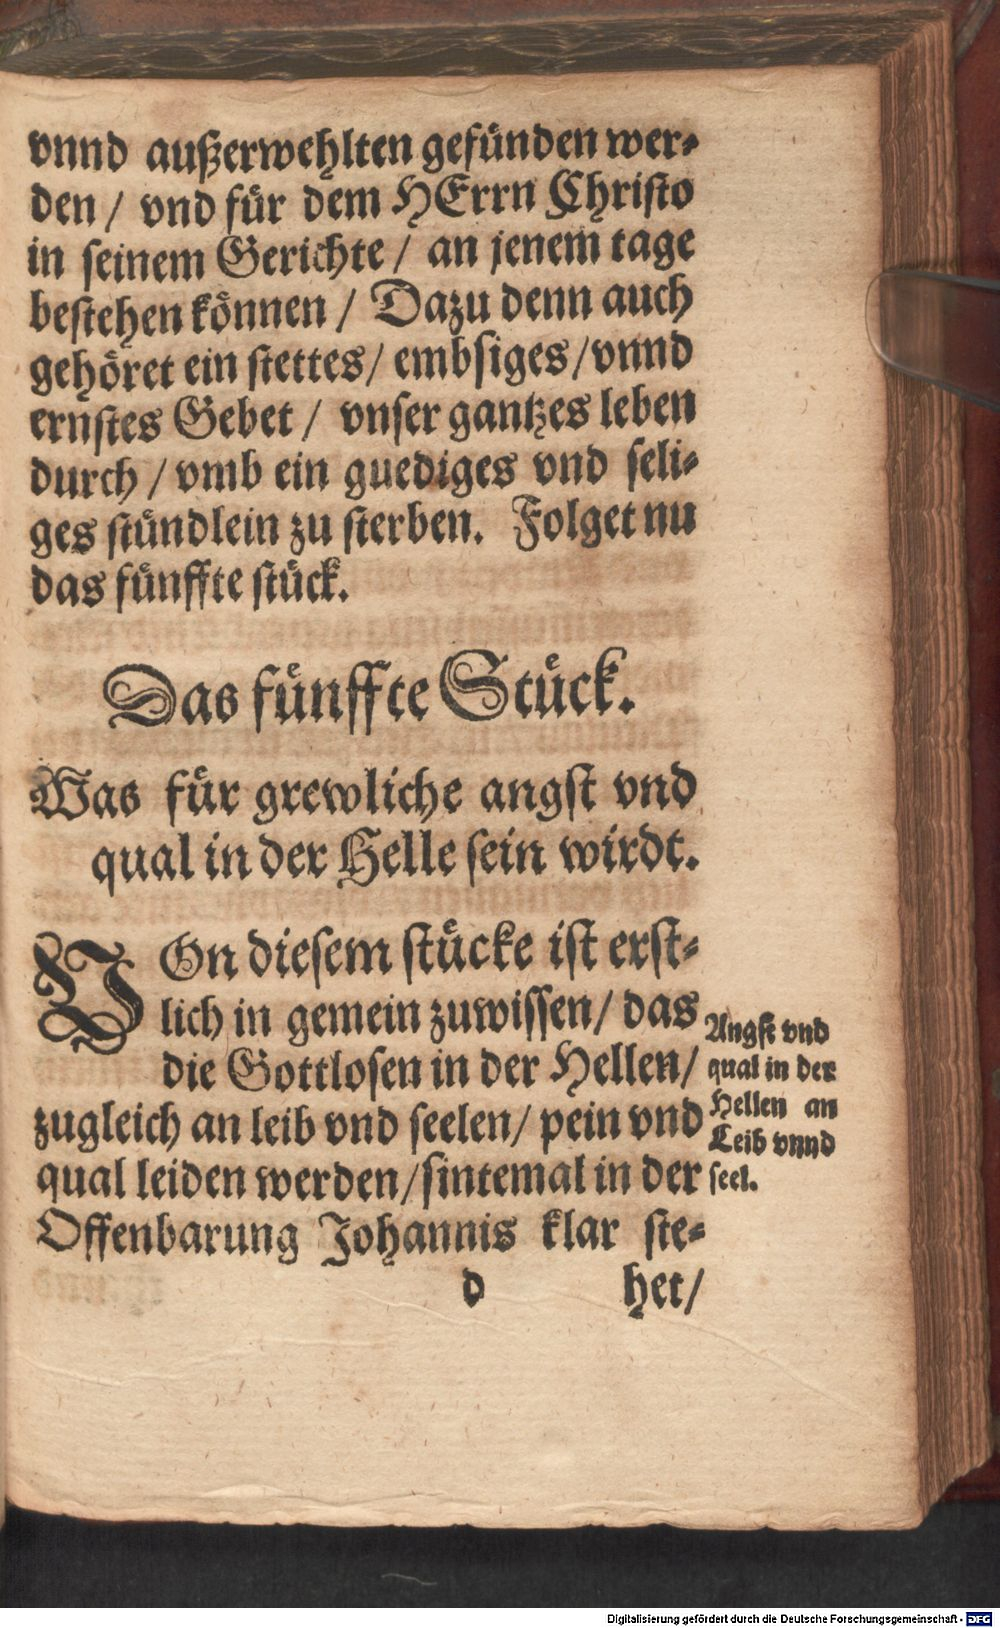 vnnd außerwehlten gefünden wer-
den / vnd für dem HErrn Christo
in seinem Gerichte / an jenem tage
bestehen können / Dazu denn auch
gehöret ein stettes / embsiges / vnnd
ernstes Gebet / vnser gantzes leben
durch / vmb ein guediges vnd seli-
ges stündlein zu sterben. Folget nu
das fünffte stück.
Das fünffte Stück.
Was für grewliche angst vnd
qual in der Helle sein wirdt.
VOn diesem stücke ist erst-
lich in gemein zuwissen / das
die Gottlosen in der Hellen /
zugleich an leib vnd seelen / pein vnd
qual leiden werden / sintemal in der
Offenbarung Johannis klar ste-
d het /
Angst vnd
qual in der
Hellen an
Leib vnnd
seel.
Digitalisierung gefördert durch die Deutsche Forschungsgemeinschaft - DFG